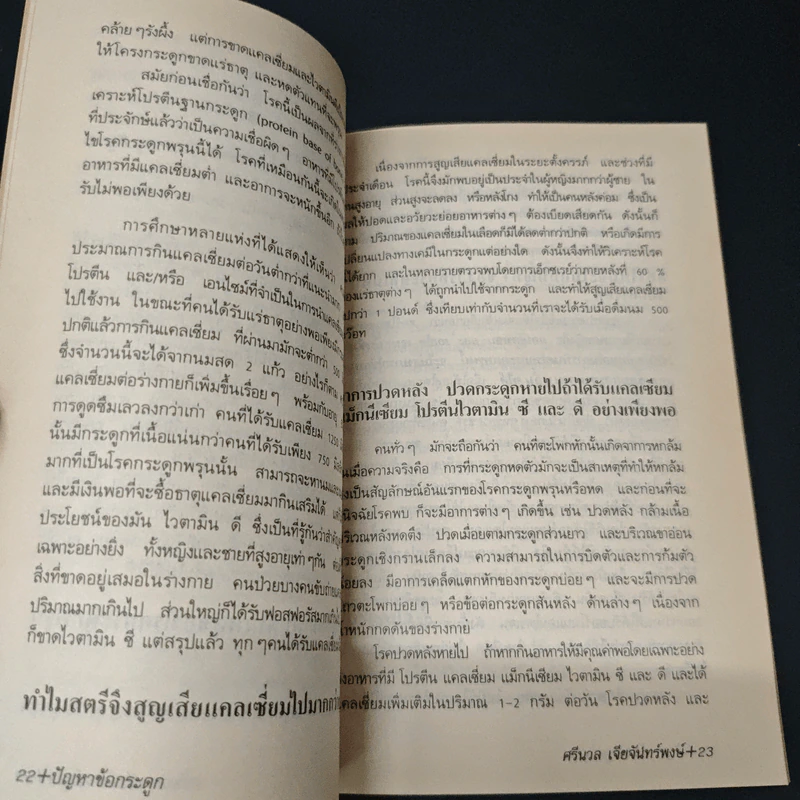 คล้าย ๆรังผึ้ง แต่การขาดแคลเซี่ยมและไวตามิน
ให้โครงกระดูกขาดแร่ธาตุ และหดตัวแทนที่จะ
สมัยก่อนเชื่อกันว่า โรคนี้เป็นผลจาก
เคราะห์โปรตีนฐานกระดูก (protein base of
ที่ประจักษ์แล้วว่าเป็นความเชื่อผิด ๆ อาหารที่
ไขโรคกระดูกพรุนนี้ได้ โรคที่เหมือนกันนี้จะ
อาหารที่มีแคลเซี่ยมต่ำ และอาการจะหนักขึ้นอีก
รับไม่พอเพียงด้วย
การศึกษาหลายแห่งที่ได้แสดงให้เห็นว่า
ประมาณการกินแคลเซี่ยมต่อวันต่ำกว่าที่แนะนำ
โปรตีน และ/หรือ เอนไซม์ที่จำเป็นในการนำแคลเซี่ยม
ไปใช้งาน ในขณะที่คนได้รับแร่ธาตุอย่างพอเพียง
ปกติแล้วการกินแคลเซี่ยม ที่ผ่านมามักจะต่ำกว่า 500
ซึ่งจำนวนนี้จะได้จากนมสด 2 แก้ว อย่างไรก็ตาม
แคลเซี่ยมต่อร่างกายก็เพิ่มขึ้นเรื่อย ๆ พร้อมกับอายุ
การดูดซึมเลวลงกว่าเก่า คนที่ได้รับแคลเซี่ยม 1250
นั้นมีกระดูกที่เนื้อแน่นกว่าคนที่ได้รับเพียง 750
มากที่เป็นโรคกระดูกพรุนนั้น สามารถจะทาน
และมีเงินพอที่จะซื้อธาตุแคลเซี่ยมมากินเสริมได้
ประโยชน์ของมัน ไวตามิน ดี ซึ่งเป็นที่รู้กันว่าสำคัญ
เฉพาะอย่างยิ่ง ทั้งหญิงและชายที่สูงอายุเท่า ๆกัน
สิ่งที่ขาดอยู่เสมอในร่างกาย คนป่วยบางคนขับถ่าย
ปริมาณมากเกินไป ส่วนใหญ่ก็ได้รับฟอสฟอรัสมากเกินไป
ก็ขาดไวตามิน ซี แต่สรุปแล้ว ทุก ๆคนได้รับแคลเซี่ยม
ทำไมสตรีจึงสูญเสียแคลเซี่ยมไปมากกว่า
22+ปัญหาข้อกระดูก
เนื่องจากการสูญเสียแคลเซี่ยมในระยะตั้งครรภ์ และช่วงที่มี
ประจำเดือน โรคนี้จึงมักพบอยู่เป็นประจำในผู้หญิงมากกว่าผู้ชาย ใน
คนสูงอายุ ส่วนสูงจะลดลง หรือหลังโกง ทำให้เป็นคนหลังค่อม ซึ่งเป็น
ผลให้ปอดและอวัยวะย่อยอาหารต่าง ๆ ต้องเบียดเสียดกัน ดังนั้นก็
ตาม ปริมาณของแคลเซี่ยมในเลือดก็มิได้ลดต่ำกว่าปกติ หรือเกิดมีการ
เปลี่ยนแปลงทางเคมีในกระดูกแต่อย่างใด ดังนั้นจึงทำให้วิเคราะห์โรค
ได้ยาก และในหลายรายตรวจพบโดยการเอ็กซเรย์ว่าภายหลังที่ 60 %
ของแร่ธาตุต่าง ๆ ได้ถูกนำไปใช้จากกระดูก และทำให้สูญเสียแคลเซี่ยม
ไปกว่า 1 ปอนด์ ซึ่งเทียบเท่ากับจำนวนที่เราจะได้รับเมื่อดื่มนม 500
ควอท
อาการปวดหลัง ปวดกระดูกหายไปถ้าได้รับแคลเซี่ยม
แม็กนีเซี่ยม โปรตีนไวตามิน ซี และ ดี อย่างเพียงพอ
คนทั่ว ๆ มักจะถือกันว่า คนที่ตะโพกหักนั้นเกิดจาการหกล้ม
แต่เมื่อความจริงคือ การที่กระดูกหดตัวมักจะเป็นสาเหตุที่ทำให้หกล้ม
ซึ่งเป็นสัญลักษณ์อันแรกของโรคกระดูกพรุนหรือหด และก่อนที่จะ
วินิจฉัยโรคพบ ก็จะมีอาการต่าง ๆ เกิดขึ้น เช่น ปวดหลัง กล้ามเนื้อ
บริเวณหลังหดตึง ปวดเมื่อยตามกระดูกส่วนยาว และบริเวณขาอ่อน
กระดูกเชิงกรานเล็กลง ความสามารถในการบิดตัวและการก้มตัว
น้อยลง มีอาการเคล็ดแตกหักของกระดูกบ่อย ๆ และจะมีการปวด
แถวตะโพกบ่อย ๆ หรือข้อต่อกระดูกสันหลัง ด้านล่าง ๆ เนื่องจาก
น้ำหนักกดดันของร่างกาย
โรคปวดหลังหายไป ถ้าหากกินอาหารให้มีคุณค่าพอโดยเฉพาะอย่าง
ยิ่งอาหารที่มี โปรตีน แคลเซี่ยม แม็กนีเซี่ยม ไวตามิน ซี และ ดี และได้
แคลเซี่ยมเพิ่มเติมในปริมาณ 1-2 กรัม ต่อวัน โรคปวดหลัง และ
ศรีนวล เจียจันทร์พงษ์+23